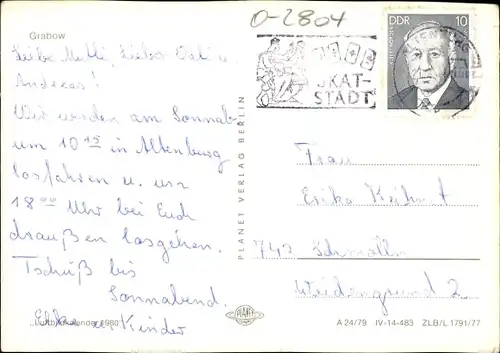 Grabow
O-2804
Liebe Mutti, Lieber
Andreas!
Wir werden am Sonnab-
um 10 15 in Altenburg
losfahren u. um
18 00 Uhr bei Euch
draußen losgehen.
Tschüß bis
Sonnabend.
Elke u. Kinder
"Luftbildkalender 1980"
PLANET VERLAG BERLIN
PLANET
SKAT-
STADT
DDR 10
Frau
Erika
742 Schmölln
Weidengrund 2
A 24/79 IV-14-483 ZLB/L 1791/77